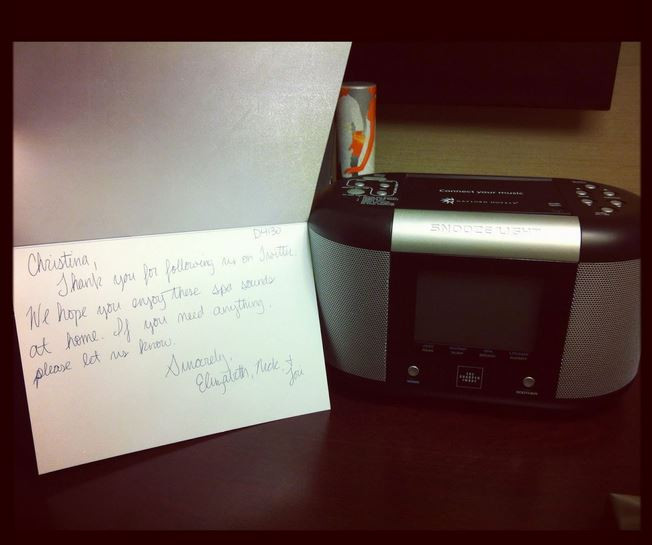 D4130
Christina,
Thank you for following us on Twitter.
We hope you enjoy these spa sounds
at home. If you need anything,
please let us know.
Sincerely,
Elizabeth, Nick, &
Connect your music
GAYLORD HOTELS
SNOOZE/LIGHT
THE
SHARPER
IMAGE